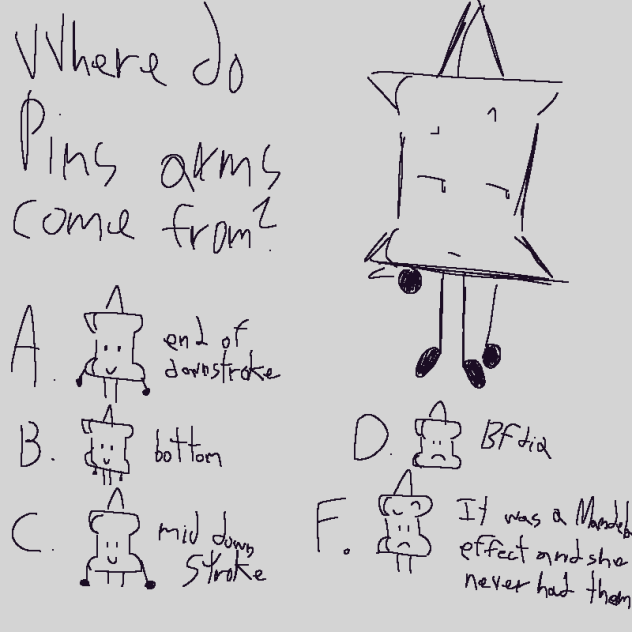 Where do
Pins arms
come from?
A.
end of
downstroke
B.
bottom
C.
mid down
stroke
D.
BFdia
F.
It was a Mandela
effect and she
never had them